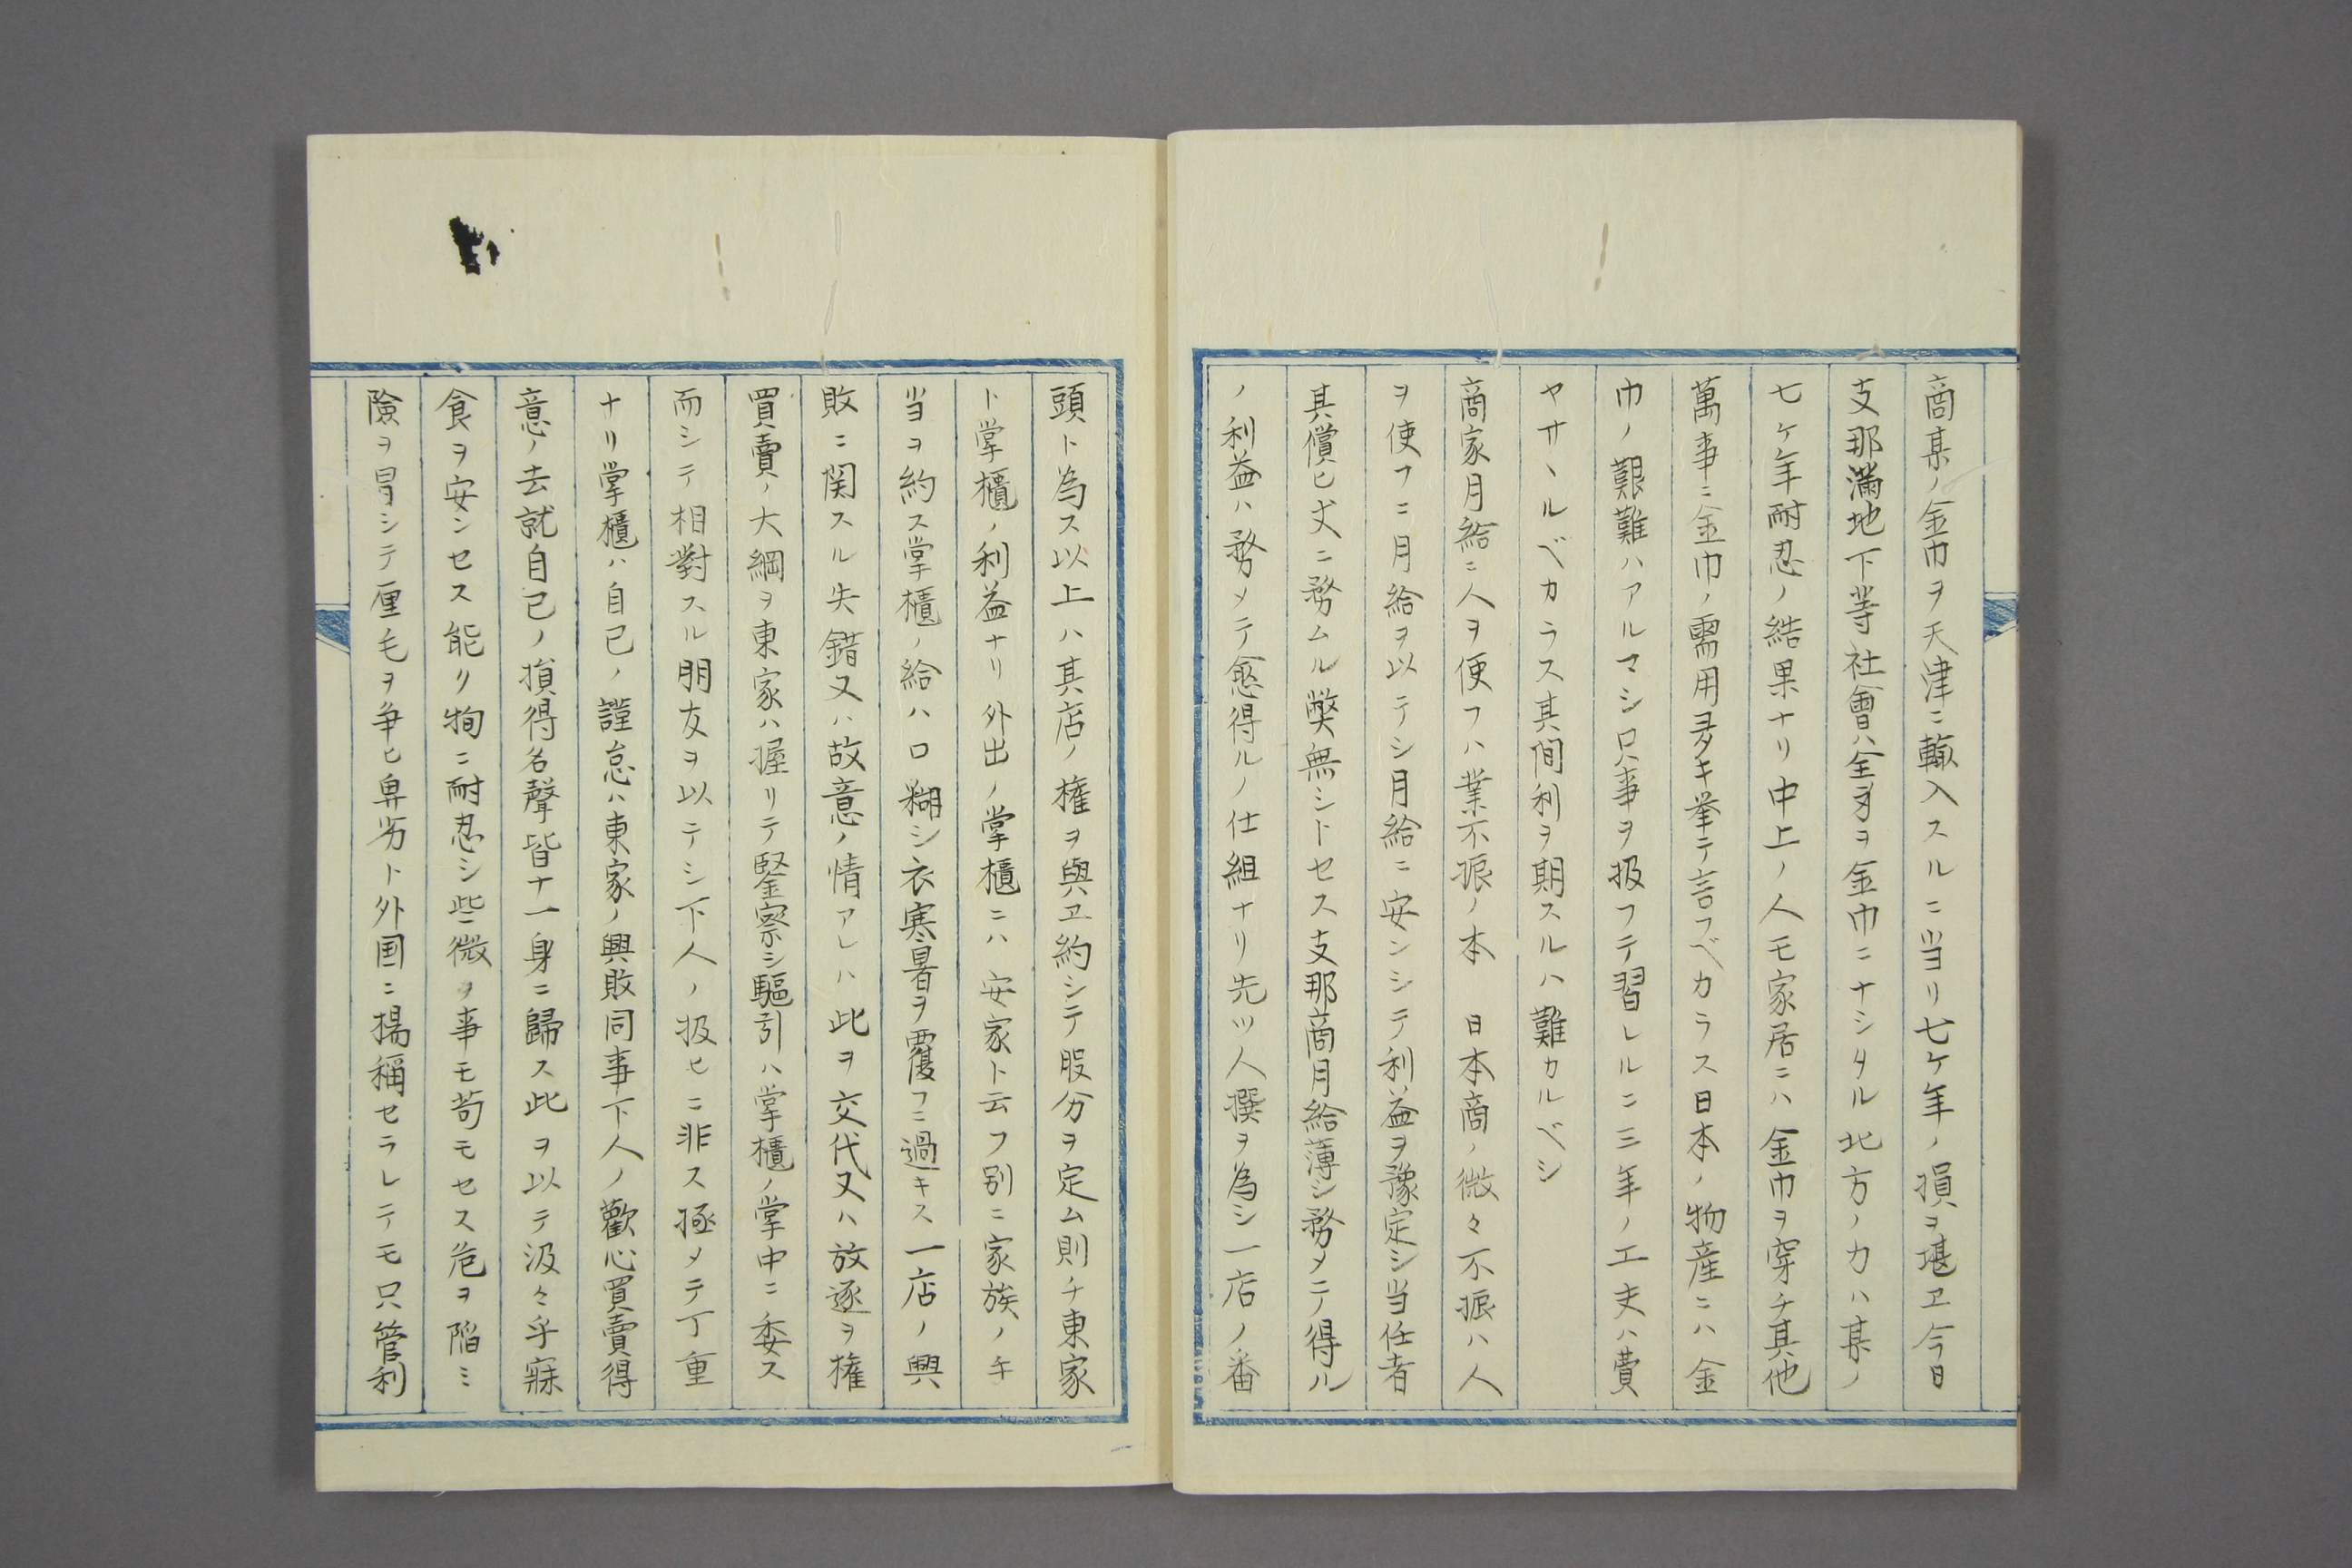 商某ノ金巾ヲ天津ニ輸入スルニ当リ七ケ年ノ損ヲ堪ヱ今日
支那満地下等社會ハ全身ヲ金巾ニナシタル北方ノ力ハ某ノ
七ケ年耐忍ノ結果ナリ中上ノ人モ家居ニハ金巾ヲ穿チ其他
萬事ニ金巾ノ需用多キ挙テ言フベカラス日本ノ物産ニハ金
巾ノ艱難ハアルマシ只事ヲ扱フテ習レルニ三年ノ工夫ハ費
ヤサヽルベカラス其間利ヲ期スルハ難カルベシ
商家月給ニ人ヲ便フハ業不振ノ本 日本商ノ微々不振ハ人
ヲ使フニ月給ヲ以テシ月給ニ安ンシテ利益ヲ豫定シ当任者
其償ヒ丈ニ務ムル弊無シトセス支那商月給薄シ務メテ得ル
ノ利益ハ務メテ愈得ルノ仕組ナリ先ツ人撰ヲ為シ一店ノ番
頭ト為ス以上ハ其店ノ権ヲ與ヱ約シテ股分ヲ定ム則チ東家
ト掌櫃ノ利益ナリ外出ノ掌櫃ニハ安家ト云フ別ニ家族ノ手
当ヲ約ス掌櫃ノ給ハ口糊シ衣寒暑ヲ覆フニ過キス一店ノ興
敗ニ関スル失錯又ハ故意ノ情アレハ此ヲ交代又ハ放逐ヲ権
買賣ノ大綱ヲ東家ハ握リテ鑒察シ驅引ハ掌櫃ノ掌中ニ委ス
而シテ相對スル朋友ヲ以テシ下人ノ扱ヒニ非ス極メテ丁重
ナリ掌櫃ハ自己ノ謹怠ハ東家ノ興敗同事下人ノ歡心買賣得
意ノ去就自己ノ損得名聲皆ナ一身ニ歸ス此ヲ以テ汲々乎寐
食ヲ安ンセス能リ物ニ耐忍シ些微ノ事モ苟モセス危ヲ陷ミ
險ヲ冒シテ厘毛ヲ争ヒ鼻劣ト外国ニ揚稱セラレテモ只管利